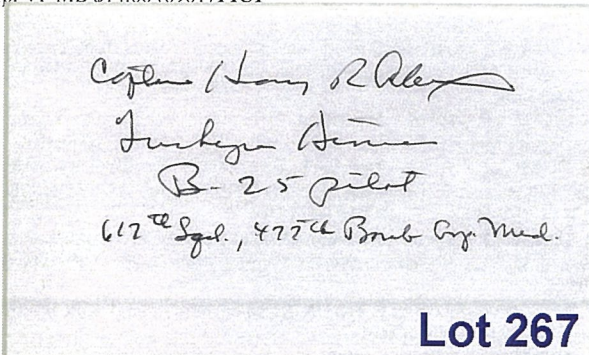 Captain Harry R
Tuskegee Airman
B-25 pilot
617th Sqd., 477th Bomb Grp. Med.
Lot 267